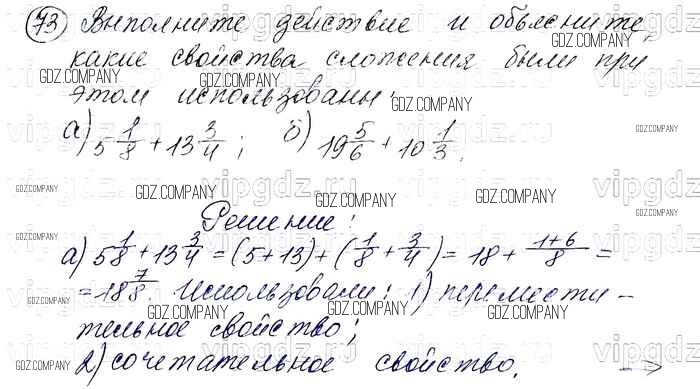 73) Выполните действие и объясните,
какие свойства сложения были при
этом использованы:
а) 5 1/8 + 13 3/4 ; б) 19 5/6 + 10 1/3.
Решение:
а) 5 1/8 + 13 3/4 = (5 + 13) + (1/8 + 3/4) = 18 + (1+6)/8 =
= 18 7/8. Использовали: 1) перемести-
тельное свойство;
2) сочетательное свойство. →
GDZ.COMPANY
vipgdz.ru